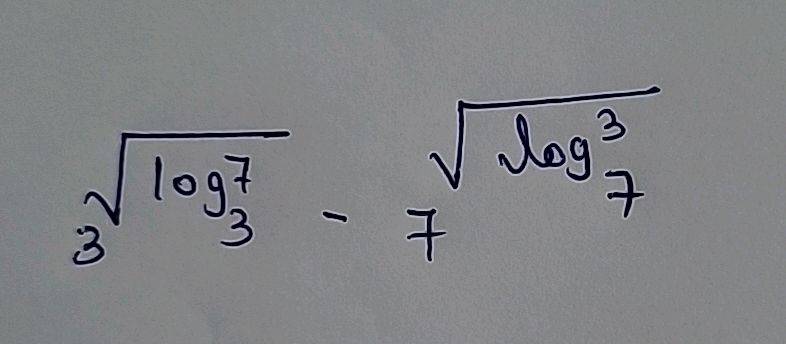 3^{\sqrt{\log_3^7}} - 7^{\sqrt{\log_7^3}}